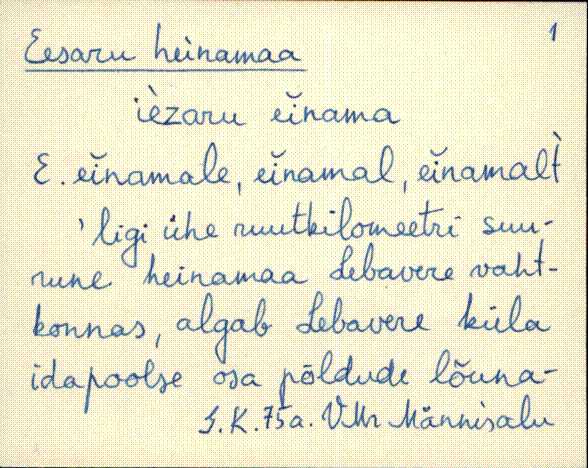 1
Eesaru heinamaa
ièzaru eĭnama
E. eĭnamale, eĭnamal, eĭnamalt̀
'ligi ühe ruutkilomeetri suu-
rune heinamaa Lebavere vaht-
konnas, algab Lebavere küla
idapoolse osa põldude lõuna-
S.K. 75a. VMr Männisalu